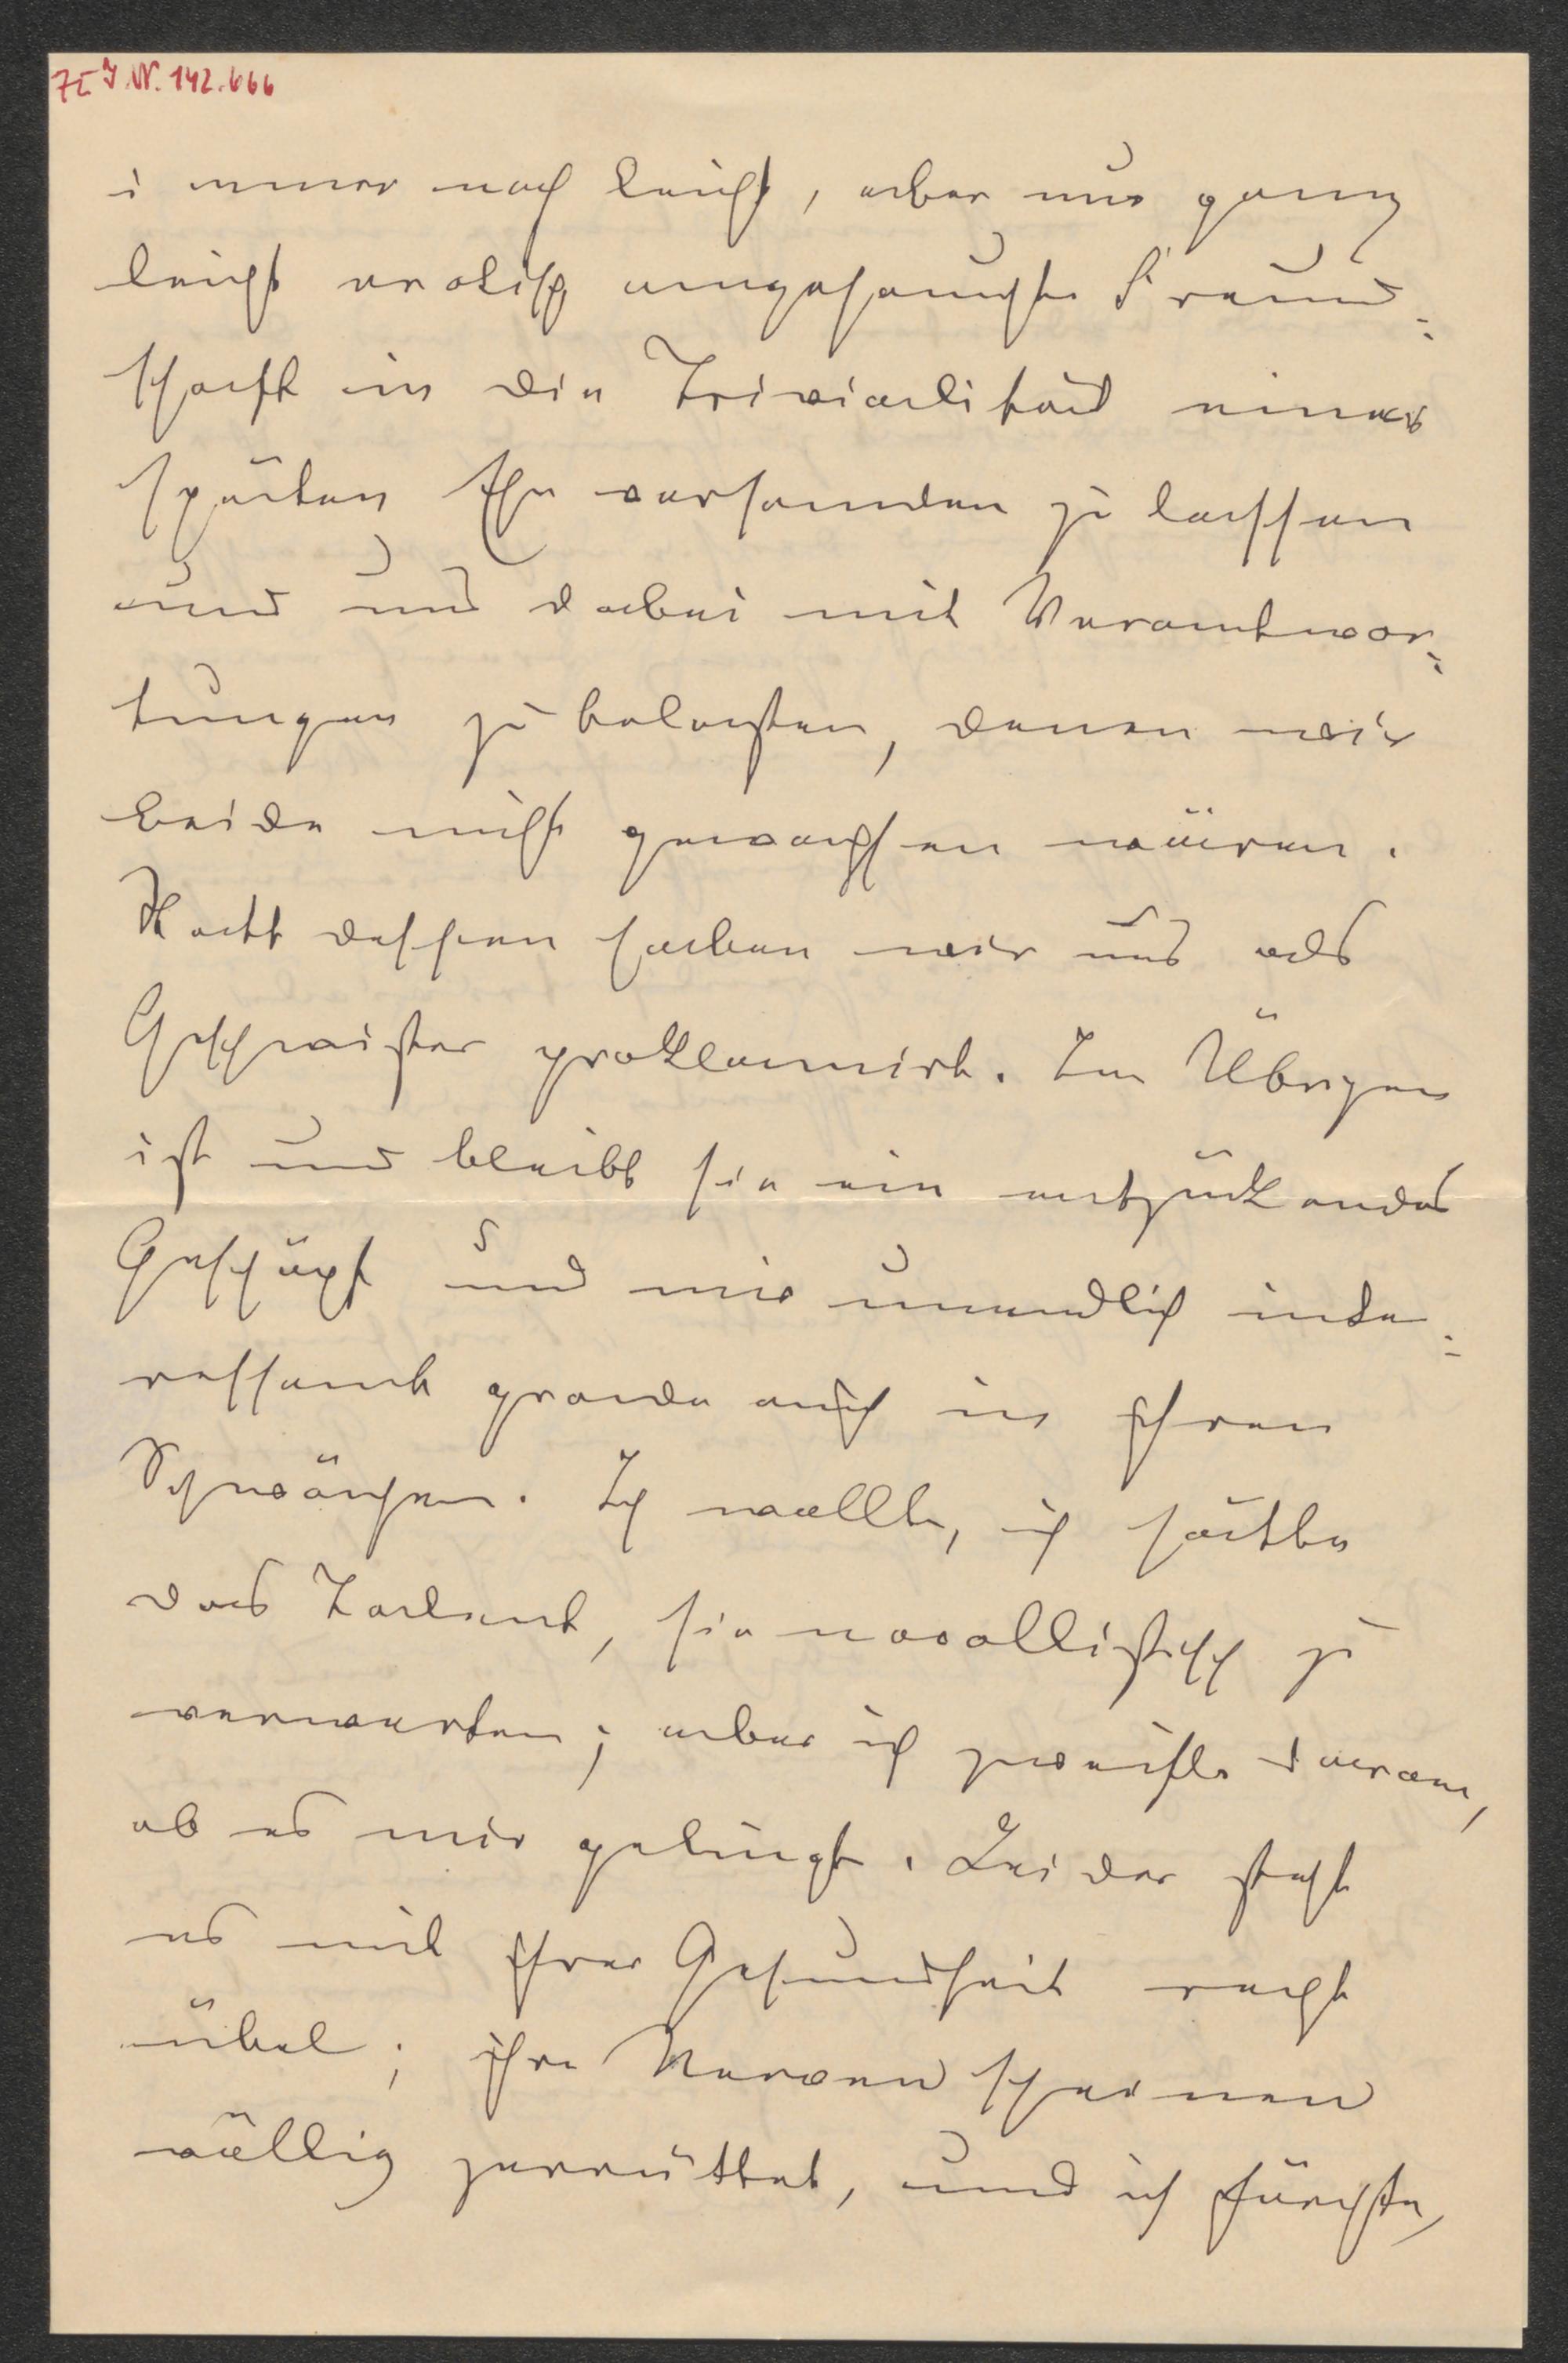 ZE I.N. 142.666
immer noch leicht, aber nur ganz
leicht erotisch angehauchte Freund-
schaft in die Trivialität einer
späten Ehe versanden zu lassen
und uns dabei mit Verantwor-
tungen zu belasten, denen wir
beide nicht gewachsen wären.
Statt dessen haben wir uns als
Geschwister proklamirt. Im Übrigen
ist und bleibt sie ein entzückendes
Geschöpf und mir unendlich inte-
ressant grade auch in ihren
Schwächen. Ich wollte, ich hätte
das Talent, sie novellistisch zu
verwerten; aber ich zweifle daran,
ob es mir gelingt. Leider steht
es mit ihrer Gesundheit recht
übel; ihre Nerven scheinen
völlig zerrüttet, und ich fürchte,